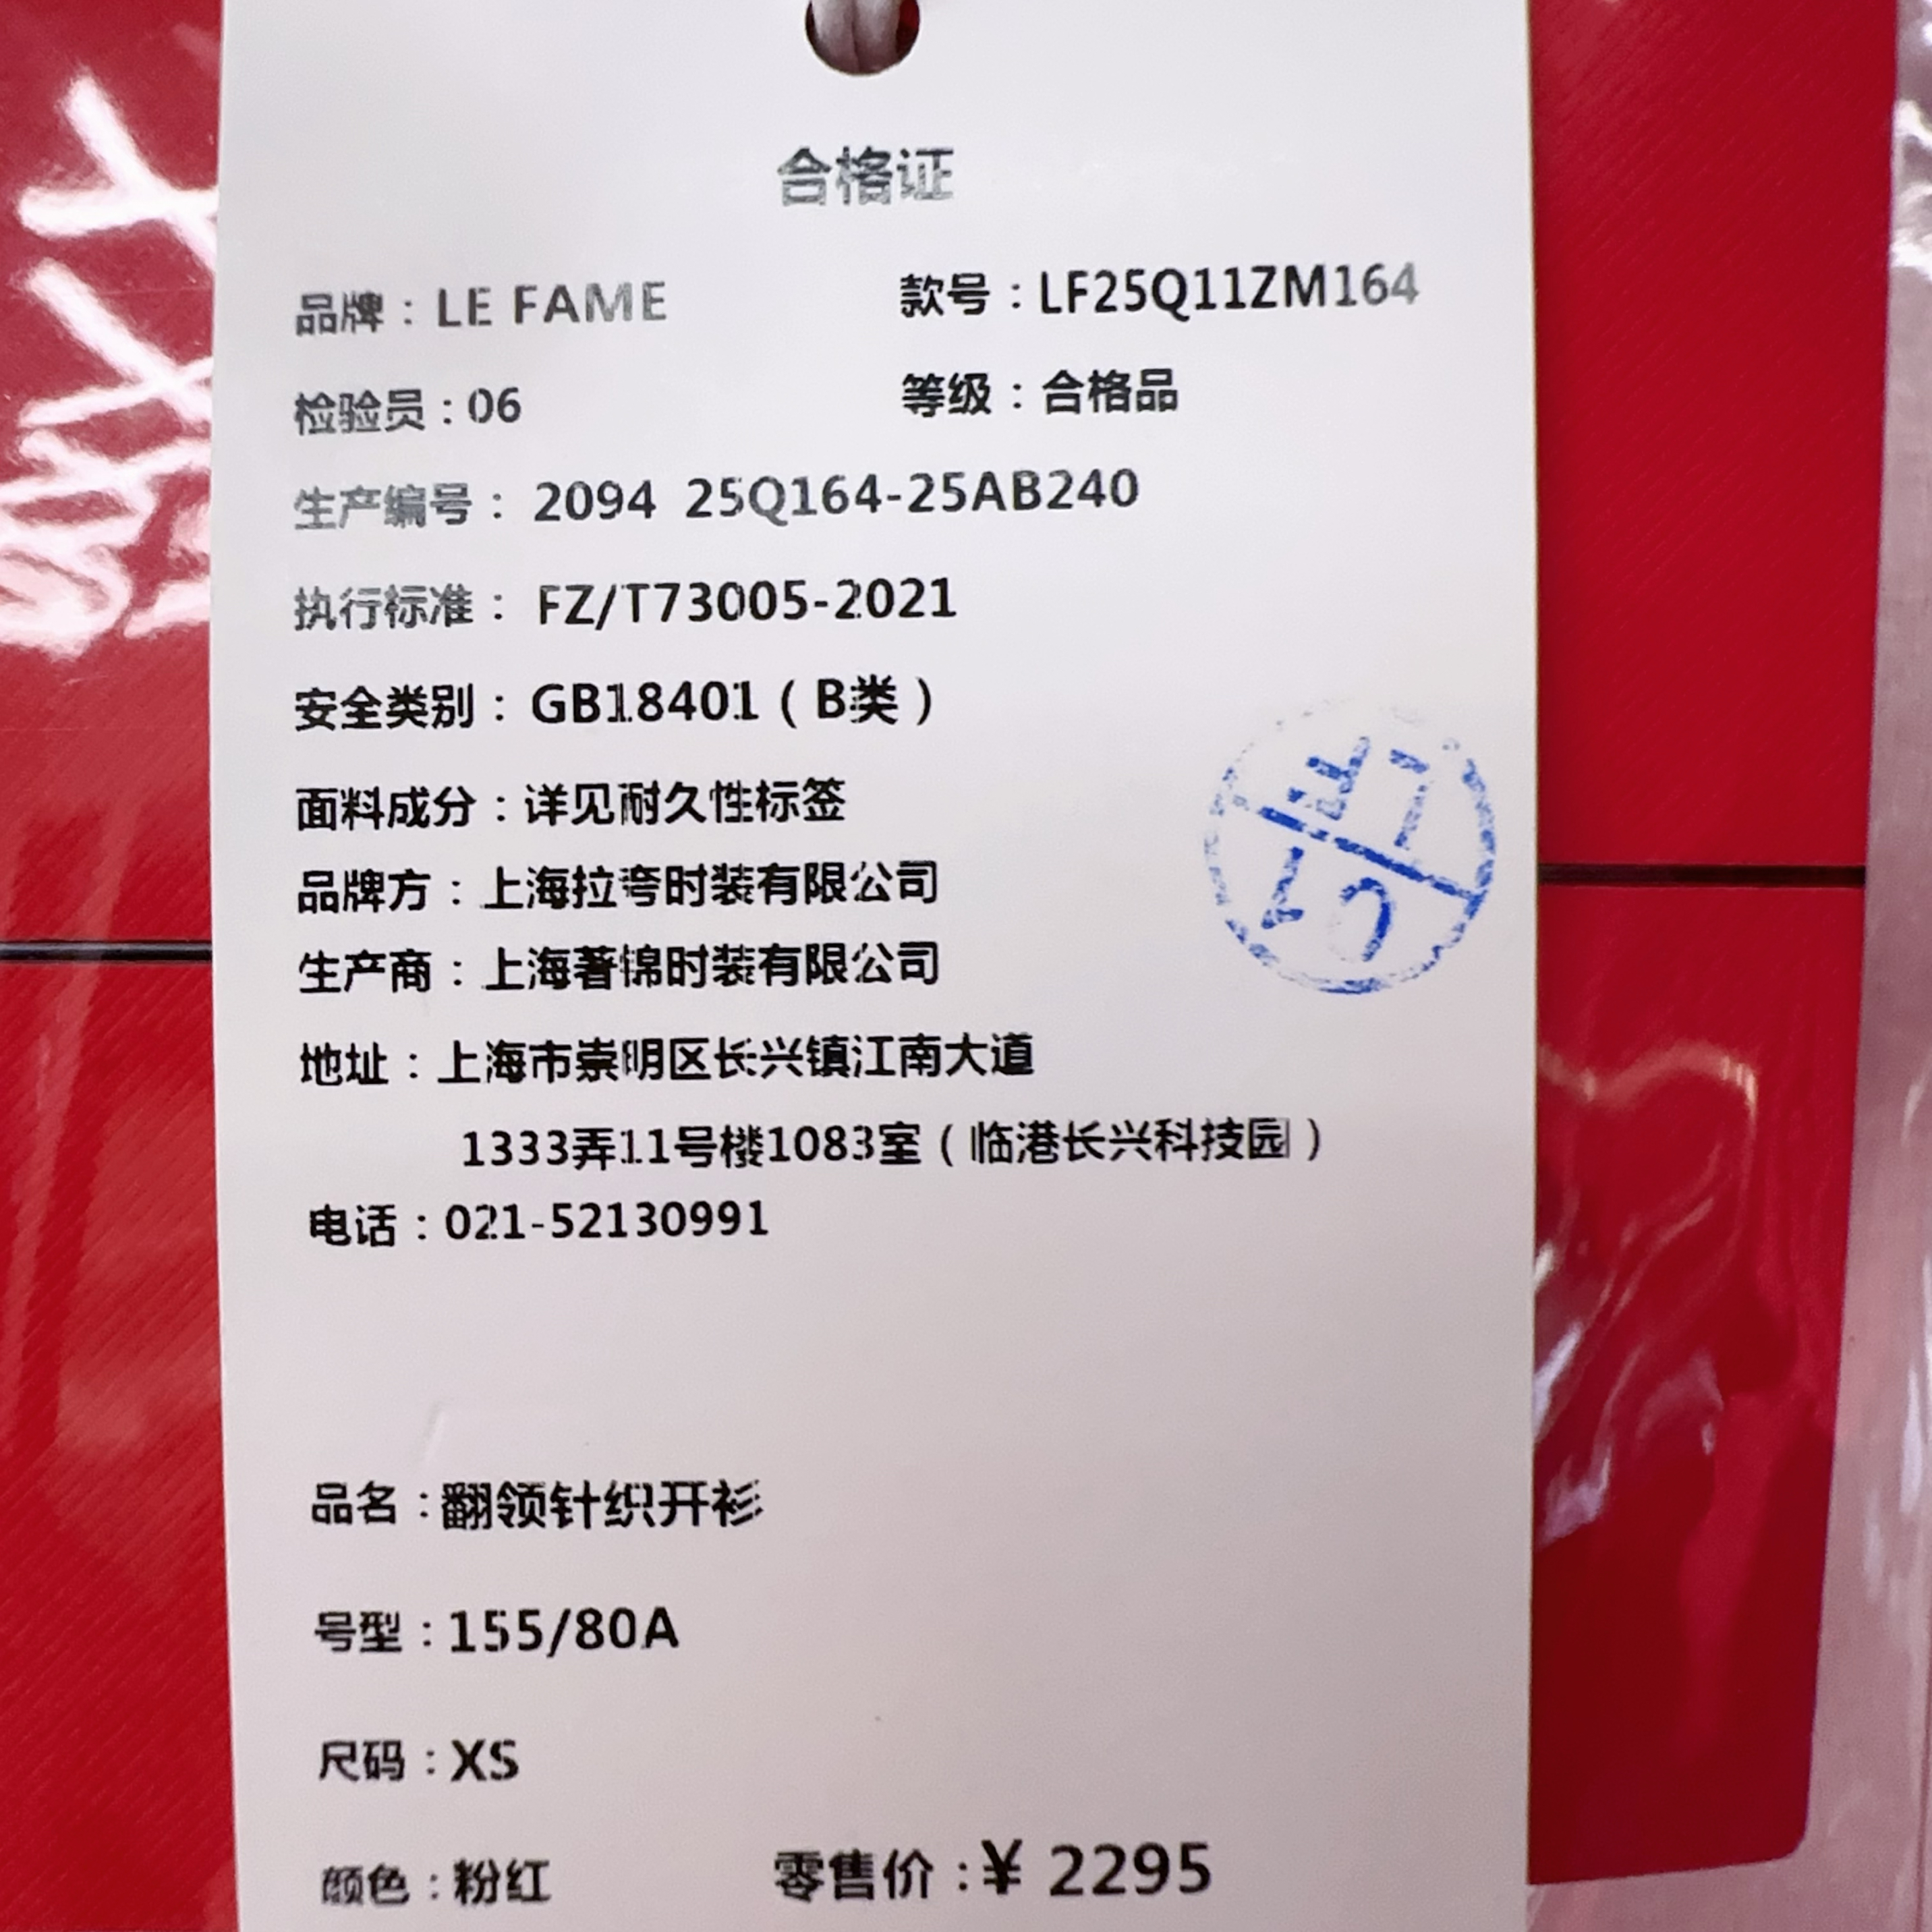 合格证
品牌：LE FAME 款号：LF25Q11ZM164
检验员：06 等级：合格品
生产编号： 2094 25Q164-25AB240
执行标准： FZ/T73005-2021
安全类别： GB18401（B类）
面料成分：详见耐久性标签
品牌方：上海拉夸时装有限公司
生产商：上海著锦时装有限公司
地址：上海市崇明区长兴镇江南大道
1333弄11号楼1083室（临港长兴科技园）
电话：021-52130991
品名：翻领针织开衫
号型：155/80A
尺码：XS
颜色：粉红 零售价：¥ 2295